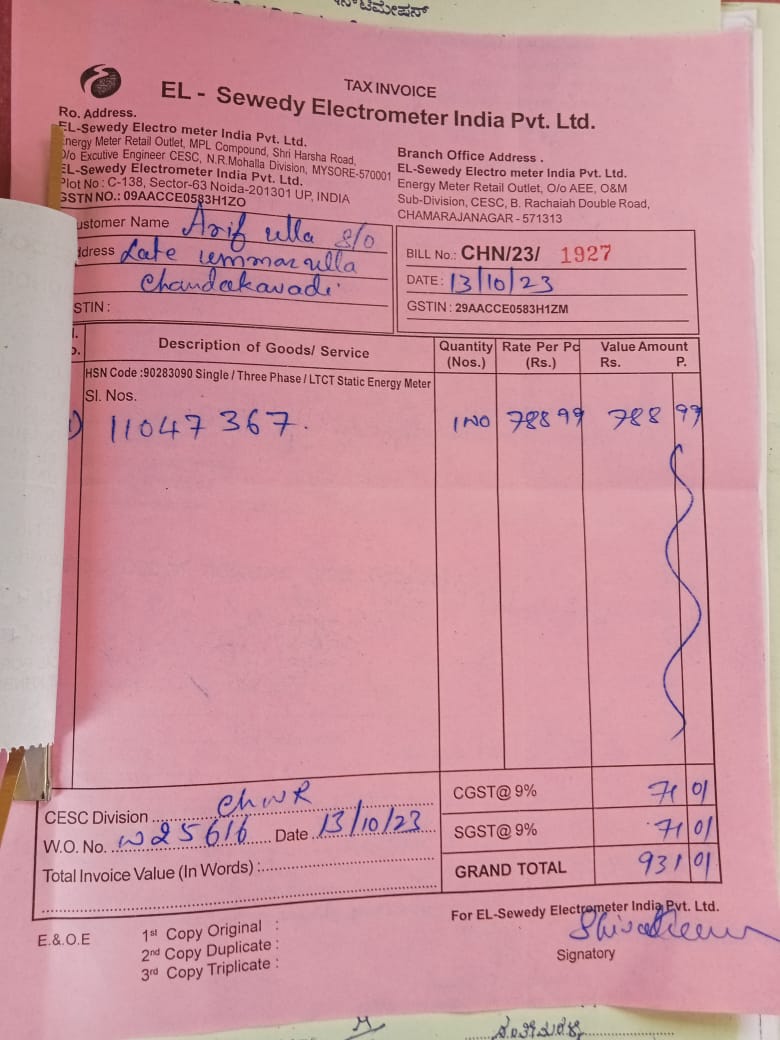 ಟಿಮೇಷನ್
TAX INVOICE
EL - Sewedy Electrometer India Pvt. Ltd.
Ro. Address.
EL-Sewedy Electro meter India Pvt. Ltd.
Energy Meter Retail Outlet, MPL Compound, Shri Harsha Road,
O/o Excutive Engineer CESC, N.R.Mohalla Division, MYSORE-570001
EL-Sewedy Electrometer India Pvt. Ltd.
Plot No : C-138, Sector-63 Noida-201301 UP, INDIA
GSTN NO.: 09AACCE0583H1ZO
Branch Office Address .
EL-Sewedy Electro meter India Pvt. Ltd.
Energy Meter Retail Outlet, O/o AEE, O&M
Sub-Division, CESC, B. Rachaiah Double Road,
CHAMARAJANAGAR - 571313
ustomer Name Arif ulla S/o
ddress Late ummar ulla
Chandakavadi
STIN :
BILL No.: CHN/23/ 1927
DATE : 13/10/23
GSTIN : 29AACCE0583H1ZM
Description of Goods/ Service Quantity (Nos.) Rate Per Pc (Rs.) Value Amount Rs. P.
HSN Code :90283090 Single / Three Phase / LTCT Static Energy Meter
Sl. Nos.
1) 11047367. 1 NO 788 99 788 99
CESC Division ChNR
W.O. No. W25616 Date 13/10/23
Total Invoice Value (In Words) :
CGST@ 9% 71 01
SGST@ 9% 71 01
GRAND TOTAL 931 01
For EL-Sewedy Electrometer India Pvt. Ltd.
Signatory
E.&.O.E
1st Copy Original :
2nd Copy Duplicate :
3rd Copy Triplicate :